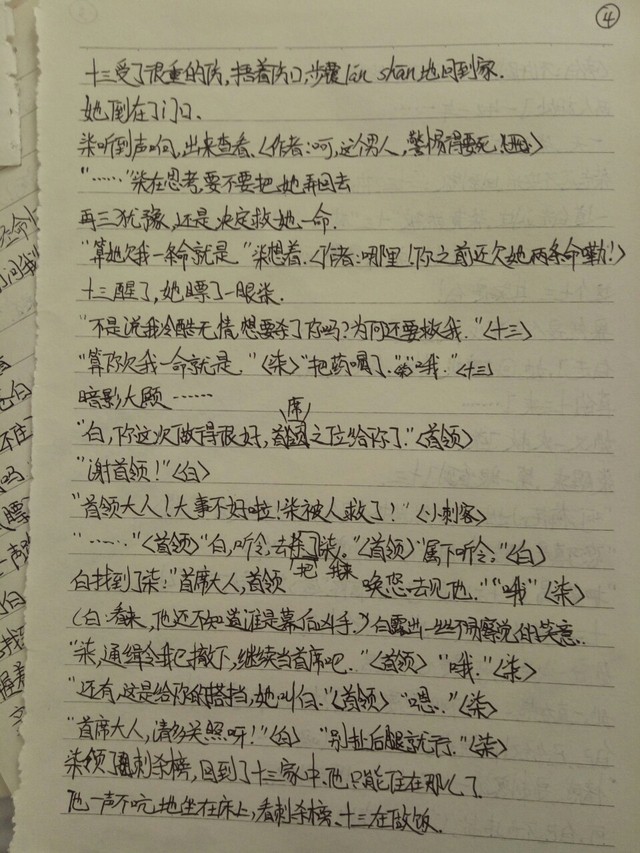 ④
十三受了很重的伤，捂着伤口，步履lán shān地回到家．
她倒在了门口．
柒听到声响，出来查看．〈作者：呵，这个男人，警惕得要死〉
“……”柒在思考，要不要把她再回去
再三犹豫，还是决定救她一命．
“算她欠我一条命就是．”柒想着．〈作者：哪里！你之前还欠她两条命嘞！〉
十三醒了，她瞟了一眼柒．
“不是说我冷酷无情，想要杀了你吗？为何还要救我．”〈十三〉
“算你欠我一命就是．”〈柒〉“把药喝了．”“哦．”〈十三〉
暗影大殿……
“白，你这次做得很好，首席之位给你了．”〈首领〉
“谢首领！”〈白〉
“首领大人！大事不好啦！柒被人救了！”〈小刺客〉
“……”〈首领〉“白，听令，去把柒带来．”〈首领〉“属下听令．”〈白〉
白找到了柒：“首席大人，首领唤您去见他．”“哦”〈柒〉
（白：看来，他还不知道谁是幕后凶手．）白露出一丝不易察觉的笑意．
“柒，通缉令我已撤下，继续当首席吧．”〈首领〉“哦．”〈柒〉
“还有，这是给你的搭挡，她叫白．”〈首领〉“嗯．”〈柒〉
“首席大人，请多关照呀！”〈白〉“别扯后腿就行．”〈柒〉
柒领了刺杀榜，回到了十三家中．他只能住在那儿了．
他一声不吭地坐在床上，看刺杀榜．十三在做饭．